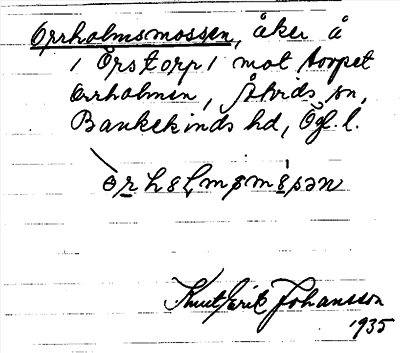 Orrholmsmossen, åker å
1 Örstorp1 mot torpet
Orrholmen, Åtvids sn,
Bankekinds hd, Ögl. l.
Knut Erik Johansson
1935